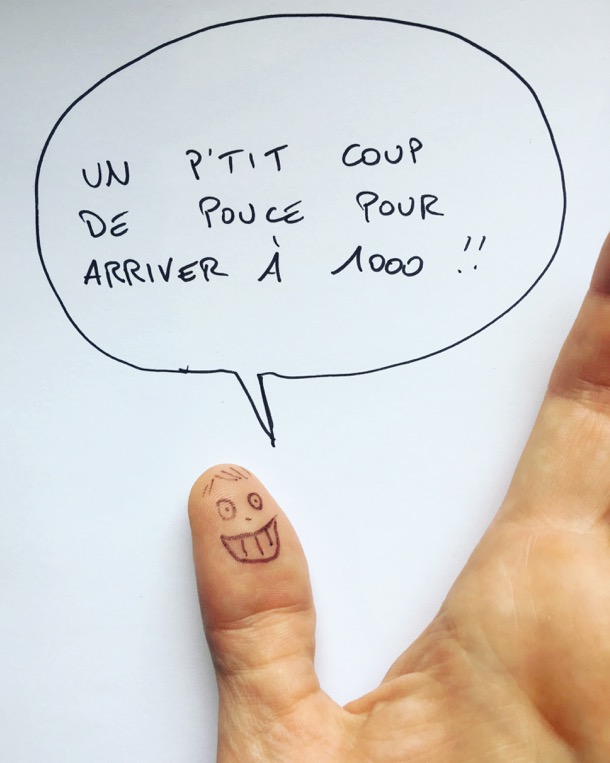 UN P'TIT COUP
DE POUCE POUR
ARRIVER À 1000 !!